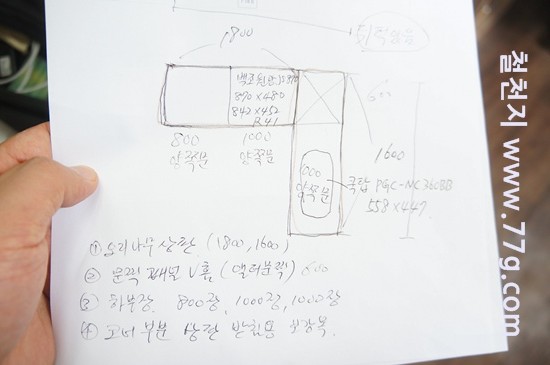 1800
백조씽크
870×480
842×452
R41
800
양쪽문
1000
양쪽문
600
1600
1000
양쪽문
쿡탑 PGC-NC360BB
558×447
① 오리나무 상판 (1800, 1600)
② 문짝 패널 V홈 (앨더문짝) 600
③ 하부장 800장, 1000장, 1000장
④ 코너 부분 상판 받침용 보강목.
철천지 www.77g.com